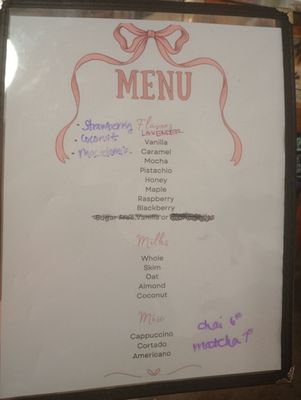 MENU
- Strawberry
- Coconut
Flavors
LAVENDER
Vanilla
Caramel
Mocha
Pistachio
Honey
Maple
Raspberry
Blackberry
Sugar Free Vanilla or
Milks
Whole
Skim
Oat
Almond
Coconut
Misc
Cappuccino
Cortado
Americano
chai 6
matcha 7